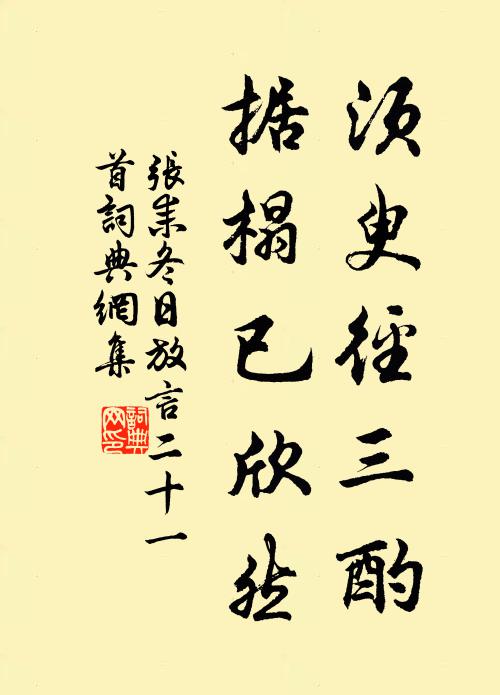 須臾徑三酌
据榻已欣然
張耒冬日放言二十一
首詞典網集
詞典
网印